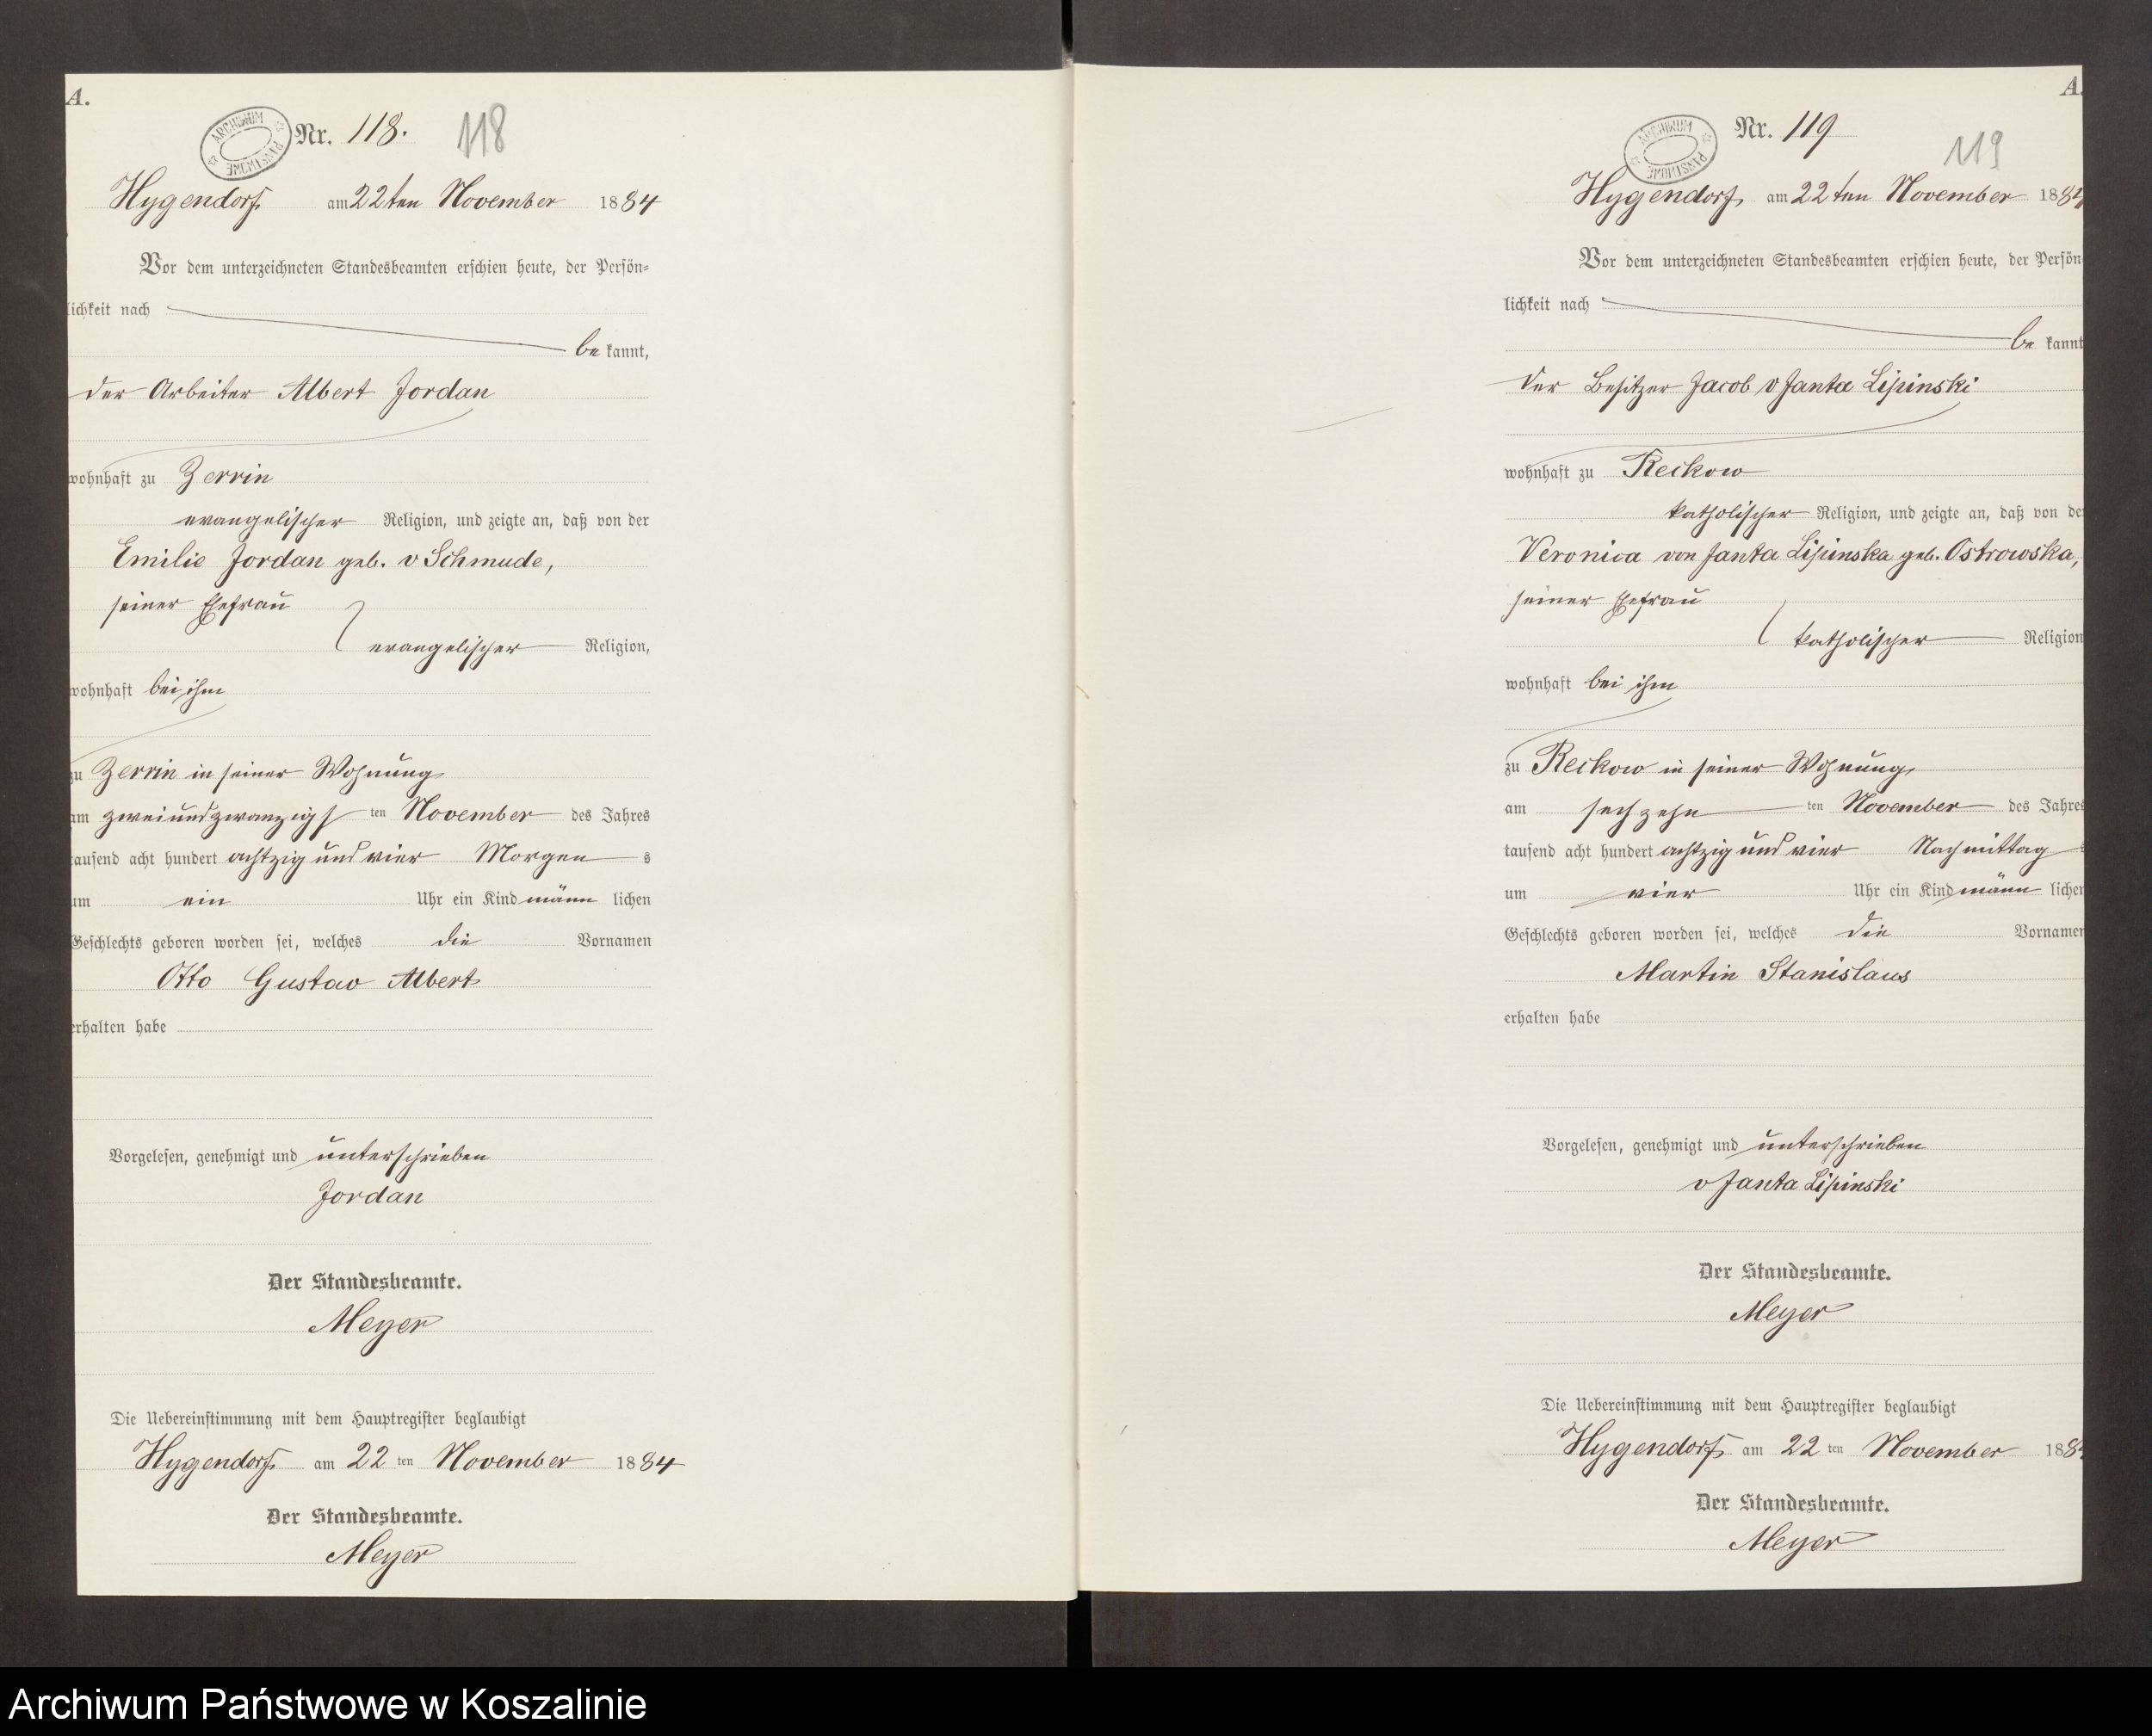 A.
ARCHIWUM PAŃSTWOWE
Nr. 118. 118
Hygendorf am 22ten November 1884
Vor dem unterzeichneten Standesbeamten erschien heute, der Persön-
lichkeit nach
be kannt,
der Arbeiter Albert Jordan
wohnhaft zu Zerrin
evangelischer Religion, und zeigte an, daß von der
Emilie Jordan geb. v Schmude,
seiner Ehefrau
evangelischer Religion,
wohnhaft bei ihm
zu Zerrin in seiner Wohnung
am zweiundzwanzigs ten November des Jahres
tausend acht hundert achtzig und vier Morgen s
um ein Uhr ein Kind männ lichen
Geschlechts geboren worden sei, welches die Vornamen
Otto Gustav Albert
erhalten habe
Vorgelesen, genehmigt und unterschrieben
Jordan
Der Standesbeamte.
Meyer
Die Uebereinstimmung mit dem Hauptregister beglaubigt
Hygendorf am 22 ten November 1884
Der Standesbeamte.
Meyer
A.
ARCHIWUM PAŃSTWOWE
Nr. 119
119
Hygendorf, am 22ten November 1884
Vor dem unterzeichneten Standesbeamten erschien heute, der Persön
lichkeit nach
be kannt
der Besitzer Jacob v Janta Lipinski
wohnhaft zu Reckow
katholischer Religion, und zeigte an, daß von der
Veronica von Janta Lipinska geb. Ostrowska,
seiner Ehefrau
katholischer Religion
wohnhaft bei ihm
zu Reckow in seiner Wohnung,
am sechzehn ten November des Jahres
tausend acht hundert achtzig und vier Nachmittag s
um vier Uhr ein Kind männ lichen
Geschlechts geboren worden sei, welches die Vornamen
Martin Stanislaus
erhalten habe
Vorgelesen, genehmigt und unterschrieben
v Janta Lipinski
Der Standesbeamte.
Meyer
Die Uebereinstimmung mit dem Hauptregister beglaubigt
Hygendorf am 22 ten November 188
Der Standesbeamte.
Meyer
Archiwum Państwowe w Koszalinie